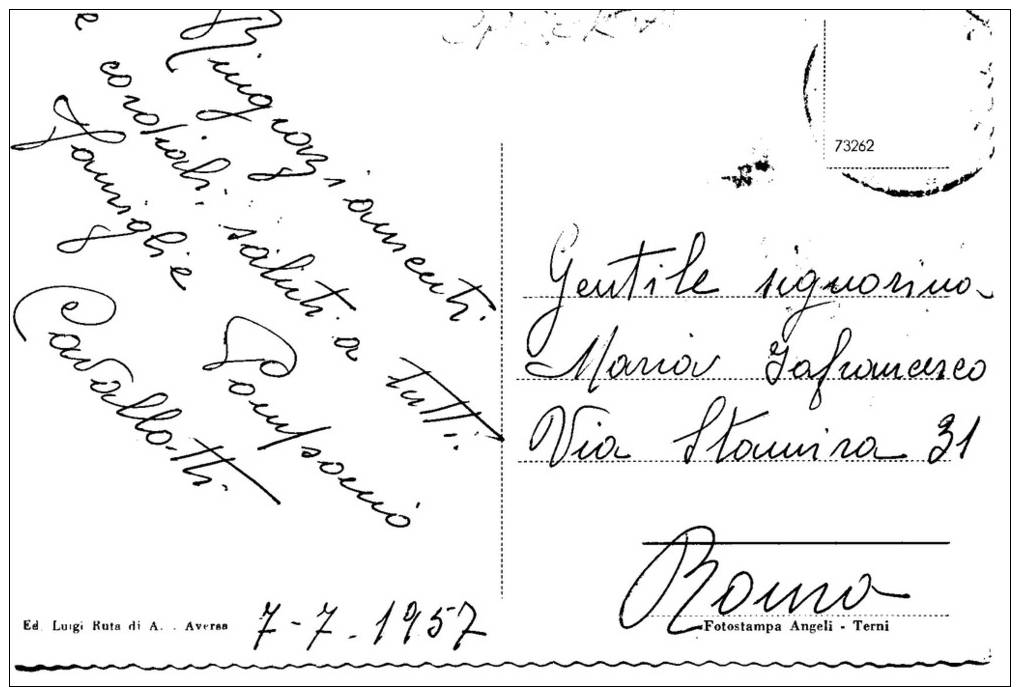 Ringraziamenti
e cordiali saluti a tutti.
Famiglie
Cavallotti.
Pomponio
7-7.1957
Ed. Luigi Ruta di A. . Aversa
73262
Gentile signorina
Maria Iafrancesco
Via Stamira 31
Roma
Fotostampa Angeli - Terni